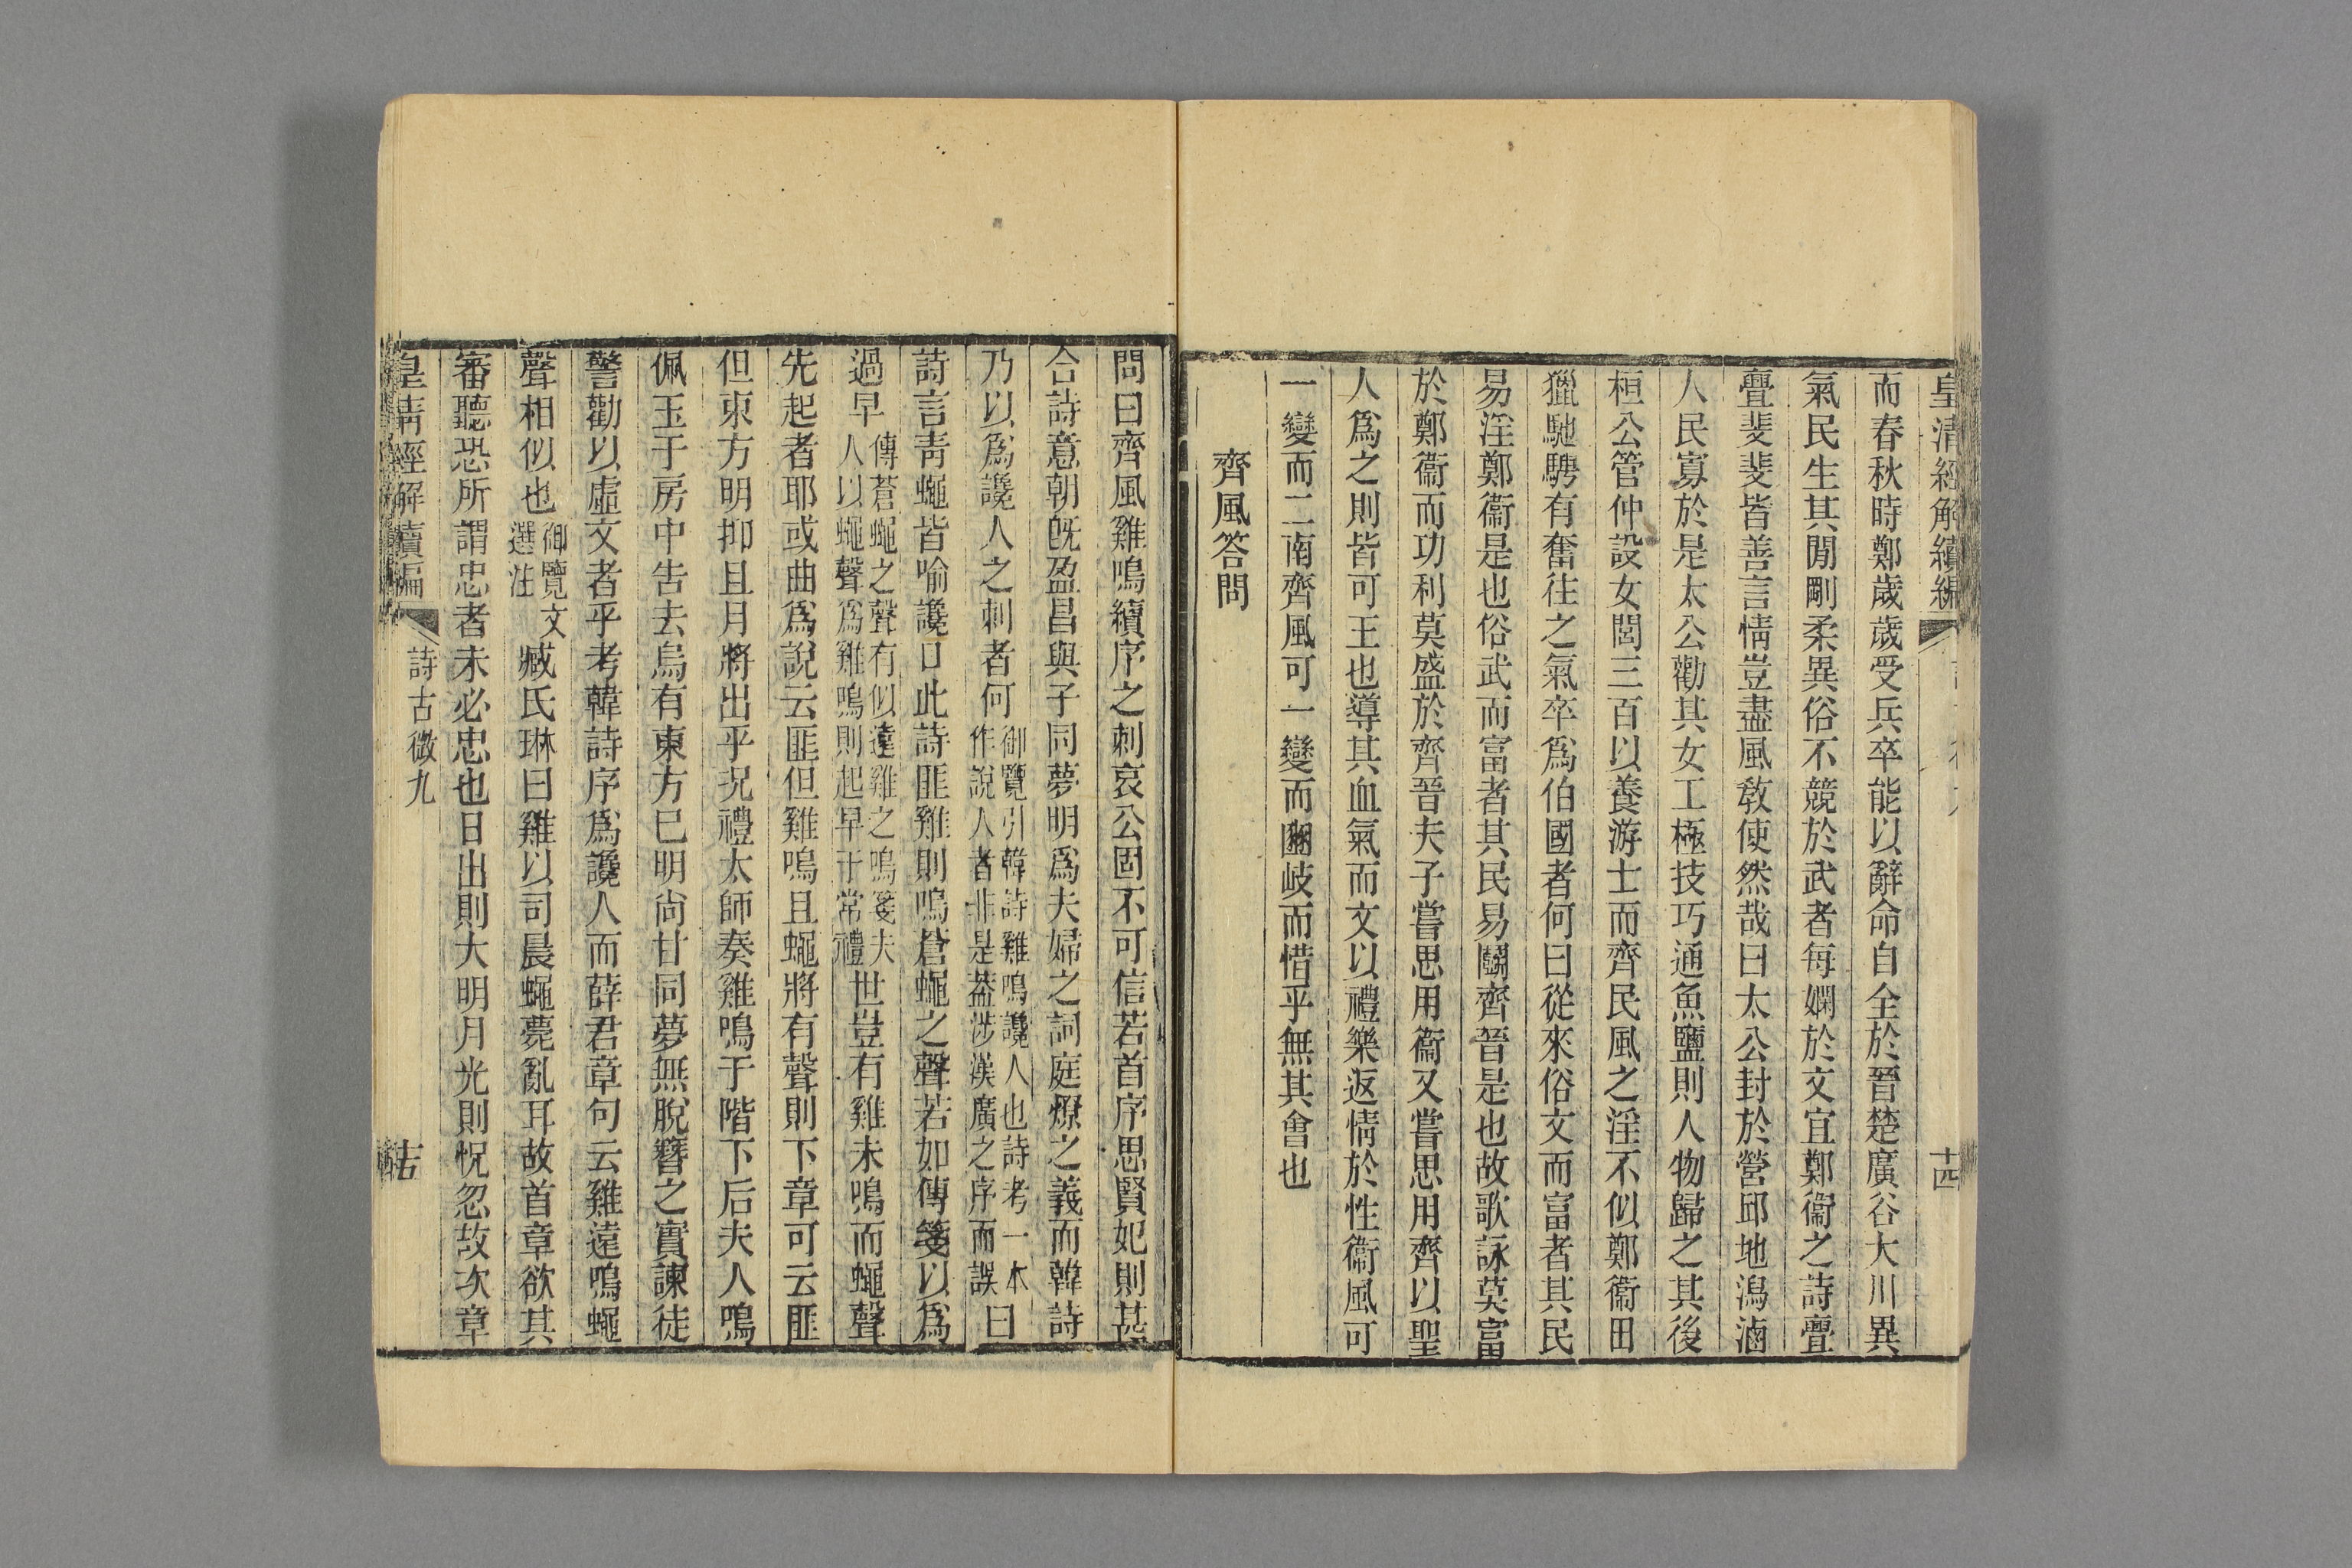 皇清經解續編
十四
而春秋時鄭歲歲受兵卒能以辭命自全於晉楚廣谷大川異
氣民生其閒剛柔異俗不競於武者每嫻於文宜鄭衞之詩亹
亹斐斐皆善言情豈盡風敎使然哉曰太公封於營邱地潟滷
人民寡於是太公勸其女工極技巧通魚鹽則人物歸之其後
桓公管仲設女閭三百以養游士而齊民風之淫不似鄭衞田
獵馳騁有奮往之氣卒爲伯國者何曰從來俗文而富者其民
易淫鄭衞是也俗武而富者其民易鬭齊晉是也故歌詠莫富
於鄭衞而功利莫盛於齊晉夫子嘗思用衞又嘗思用齊以聖
人爲之則皆可王也導其血氣而文以禮樂返情於性衞風可
一變而二南齊風可一變而豳岐而惜乎無其會也
齊風答問
問曰齊風雞鳴續序之刺哀公固不可信若首序思賢妃則甚
合詩意朝旣盈昌與子同夢明爲夫婦之詞庭燎之義而韓詩
乃以爲讒人之刺者何御覽引韓詩雞鳴讒人也詩考一本作說人者非是葢涉漢廣之序而誤曰
詩言靑蠅皆喻讒口此詩匪雞則鳴蒼蠅之聲若如傳箋以爲
過早傳蒼蠅之聲有似遠雞之鳴箋夫人以蠅聲爲雞鳴則起早于常禮世豈有雞未鳴而蠅聲
先起者耶或曲爲說云匪但雞鳴且蠅將有聲則下章可云匪
但東方明抑且月將出乎況禮太師奏雞鳴于階下后夫人鳴
佩玉于房中告去烏有東方已明尙甘同夢無脫簪之實諫徒
警勸以虛文者乎考韓詩序爲讒人而薛君章句云雞遠鳴蠅
聲相似也御覽文選注臧氏琳曰雞以司晨蠅薨亂耳故首章欲其
審聽恐所謂忠者未必忠也日出則大明月光則怳忽故次章
皇淸經解續編
詩古微九